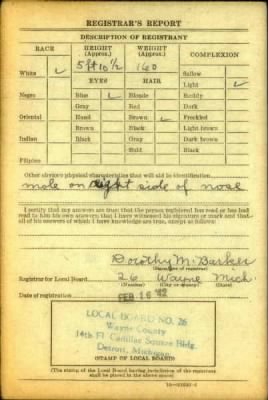 REGISTRAR'S REPORT
DESCRIPTION OF REGISTRANT
RACE HEIGHT (Approx.) WEIGHT (Approx.) COMPLEXION
White ✓ 5 ft 10 1/2 160 Sallow
Light ✓
EYES HAIR Ruddy
Negro Blue ✓ Blonde Dark
Gray Red Freckled
Oriental Hazel Brown ✓ Light brown
Brown Black Dark brown
Indian Black Gray Black
Bald
Filipino
Other obvious physical characteristics that will aid in identification
mole on right side of nose
I certify that my answers are true; that the person registered has read or has had
read to him his own answers; that I have witnessed his signature or mark and that
all of his answers of which I have knowledge are true, except as follows:
Dorothy M. Barker
(Signature of registrar)
Registrar for Local Board 26 Wayne Mich.
(Number) (City or county) (State)
Date of registration FEB 16 '42
LOCAL BOARD NO. 26
Wayne County
14th Fl. Cadillac Square Bldg.
Detroit, Michigan
STAMP OF LOCAL BOARD
(The stamp of the Local Board having jurisdiction of the registrant
shall be placed in the above space)